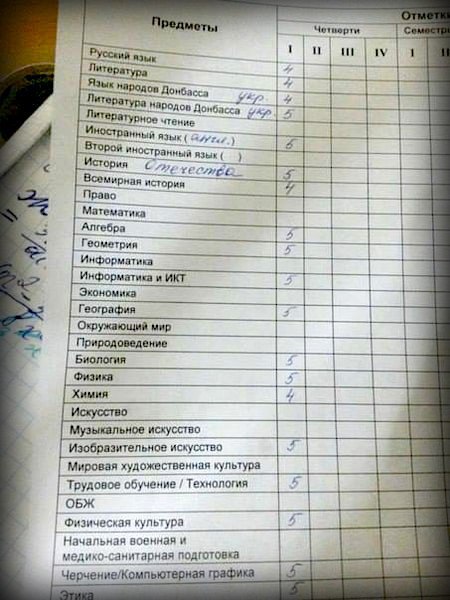 Предметы
Отметки
Четверти
I II III IV I
Русский язык 4
Литература 4
Язык народов Донбасса укр. 4
Литература народов Донбасса укр. 5
Литературное чтение
Иностранный язык (англ.) 5
Второй иностранный язык ( )
История Отечества 5
Всемирная история 4
Право
Математика
Алгебра 5
Геометрия 5
Информатика
Информатика и ИКТ 5
Экономика
География 5
Окружающий мир
Природоведение
Биология 5
Физика 5
Химия 4
Искусство
Музыкальное искусство
Изобразительное искусство 5
Мировая художественная культура
Трудовое обучение / Технология 5
ОБЖ
Физическая культура 5
Начальная военная и
медико-санитарная подготовка
Черчение/Компьютерная графика 5
Этика 5